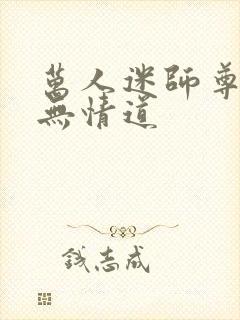 萬人迷師尊
無情道
錢志成